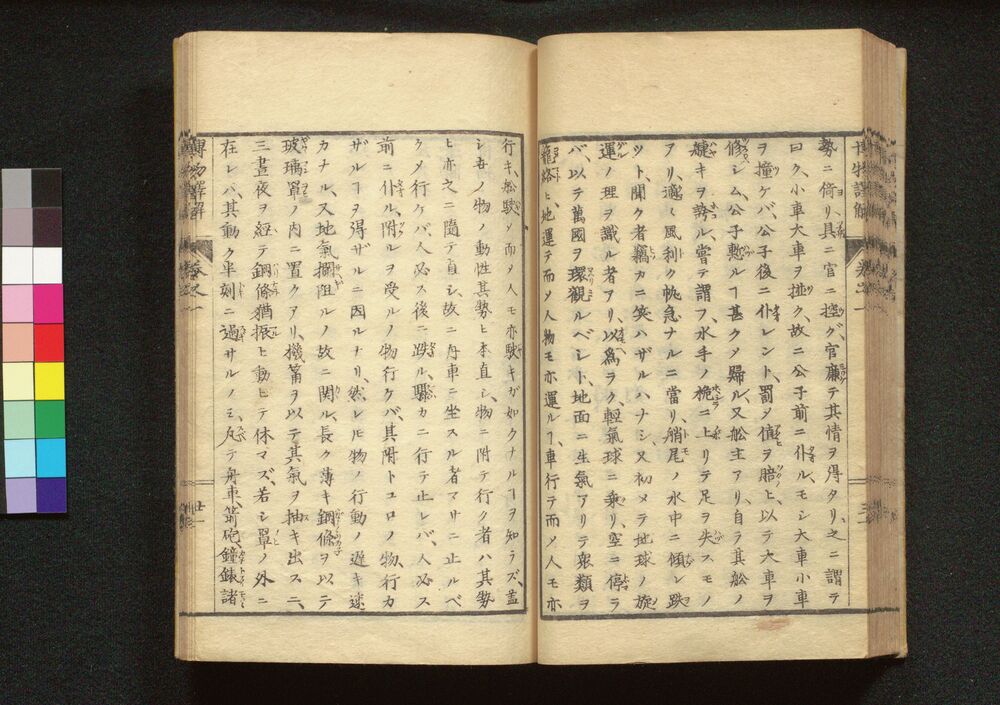 勢ニ倚リ具ニ官ニ控グ、官廉テ其情ヲ得タリ、之ニ謂テ
曰ク、小車大車ヲ挫ク、故ニ公子前ニ仆ル、モシ大車小車
ヲ撞ケバ、公子後ニ仆レント、罰ヲ値ヲ賠ヒ、以ラ大車ヲ
修シム、公子慙ルヿ甚クメ歸ル、又舩主アリ、自ラ其舩ノ
キヲ誇ル、嘗テ謂フ水手ノ桅ニ上リテ足ヲ失スモノ
アリ、適〱風利ク帆急ナルニ當リ、艄尾ノ水中ニ傾レ跌
ツト、聞ク者竊カニ笑ハザルハナシ、又初メテ地球ノ旋
運ノ理ヲ識ル者アリ、以爲ラク輕氣球ニ乗リ、空ニ停ラ
バ、以テ萬國ヲ環観ルベシト、地面ニ生氣アリテ衆類ヲ
籠絡ヒ地運テ而メ人物モ亦運ルヿ、車行テ而メ人モ亦
行キ、舩駛ソ而メ人モ亦駛キガ如クナルヿヲ知ラズ、蓋
シ吾ノ物ノ動性其勢ヒ本直シ、物ニ附テ行ク者ハ其勢
ヒ亦之ニ隨テ直シ、故ニ舟車ニ坐スル者マサニ止ルベ
クメ行ケバ、人必ス後ニ跌ル、驟カニ行テ止レバ、人必ス
前ニ仆ル、附ルヲ受ルノ物行ケバ、其附トコロノ物、行カ
ザルヿヲ得ザルニ因ルナリ、然レ𪜈物ノ行動ノ遅キ速
カナル、又地氣攔阻ルノ故ニ関ル、長ク薄キ鋼條ヲ以テ
玻璃罩ノ内ニ置クアリ、機筩ヲ以テ其氣ヲ抽キ出スニ、
三晝夜ヲ経テ鋼條猶振ヒ動ヒテ休マズ、若シ罩ノ外ニ
在レバ、其動ク半刻ニ過サルノミ、凡テ舟車、箭砲、鐘錶諸
博物譯解
巻之一
廿一